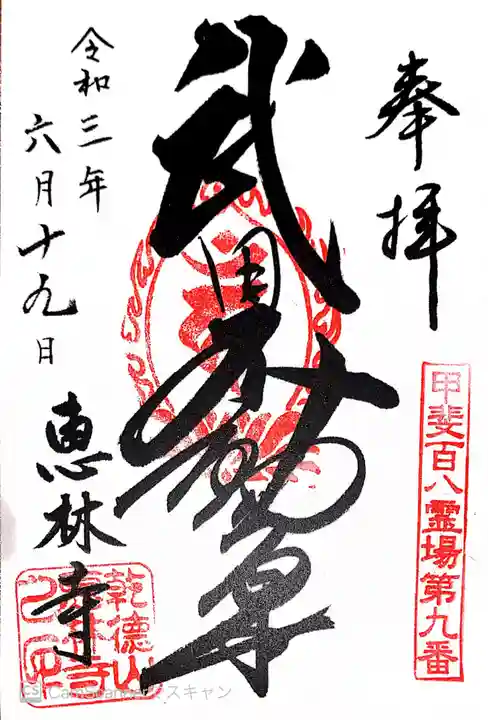 奉拝
甲斐百八霊場第九番
武田不動尊
令和三年
六月十九日
恵林寺
乾徳山
CS CamScannerでスキャン